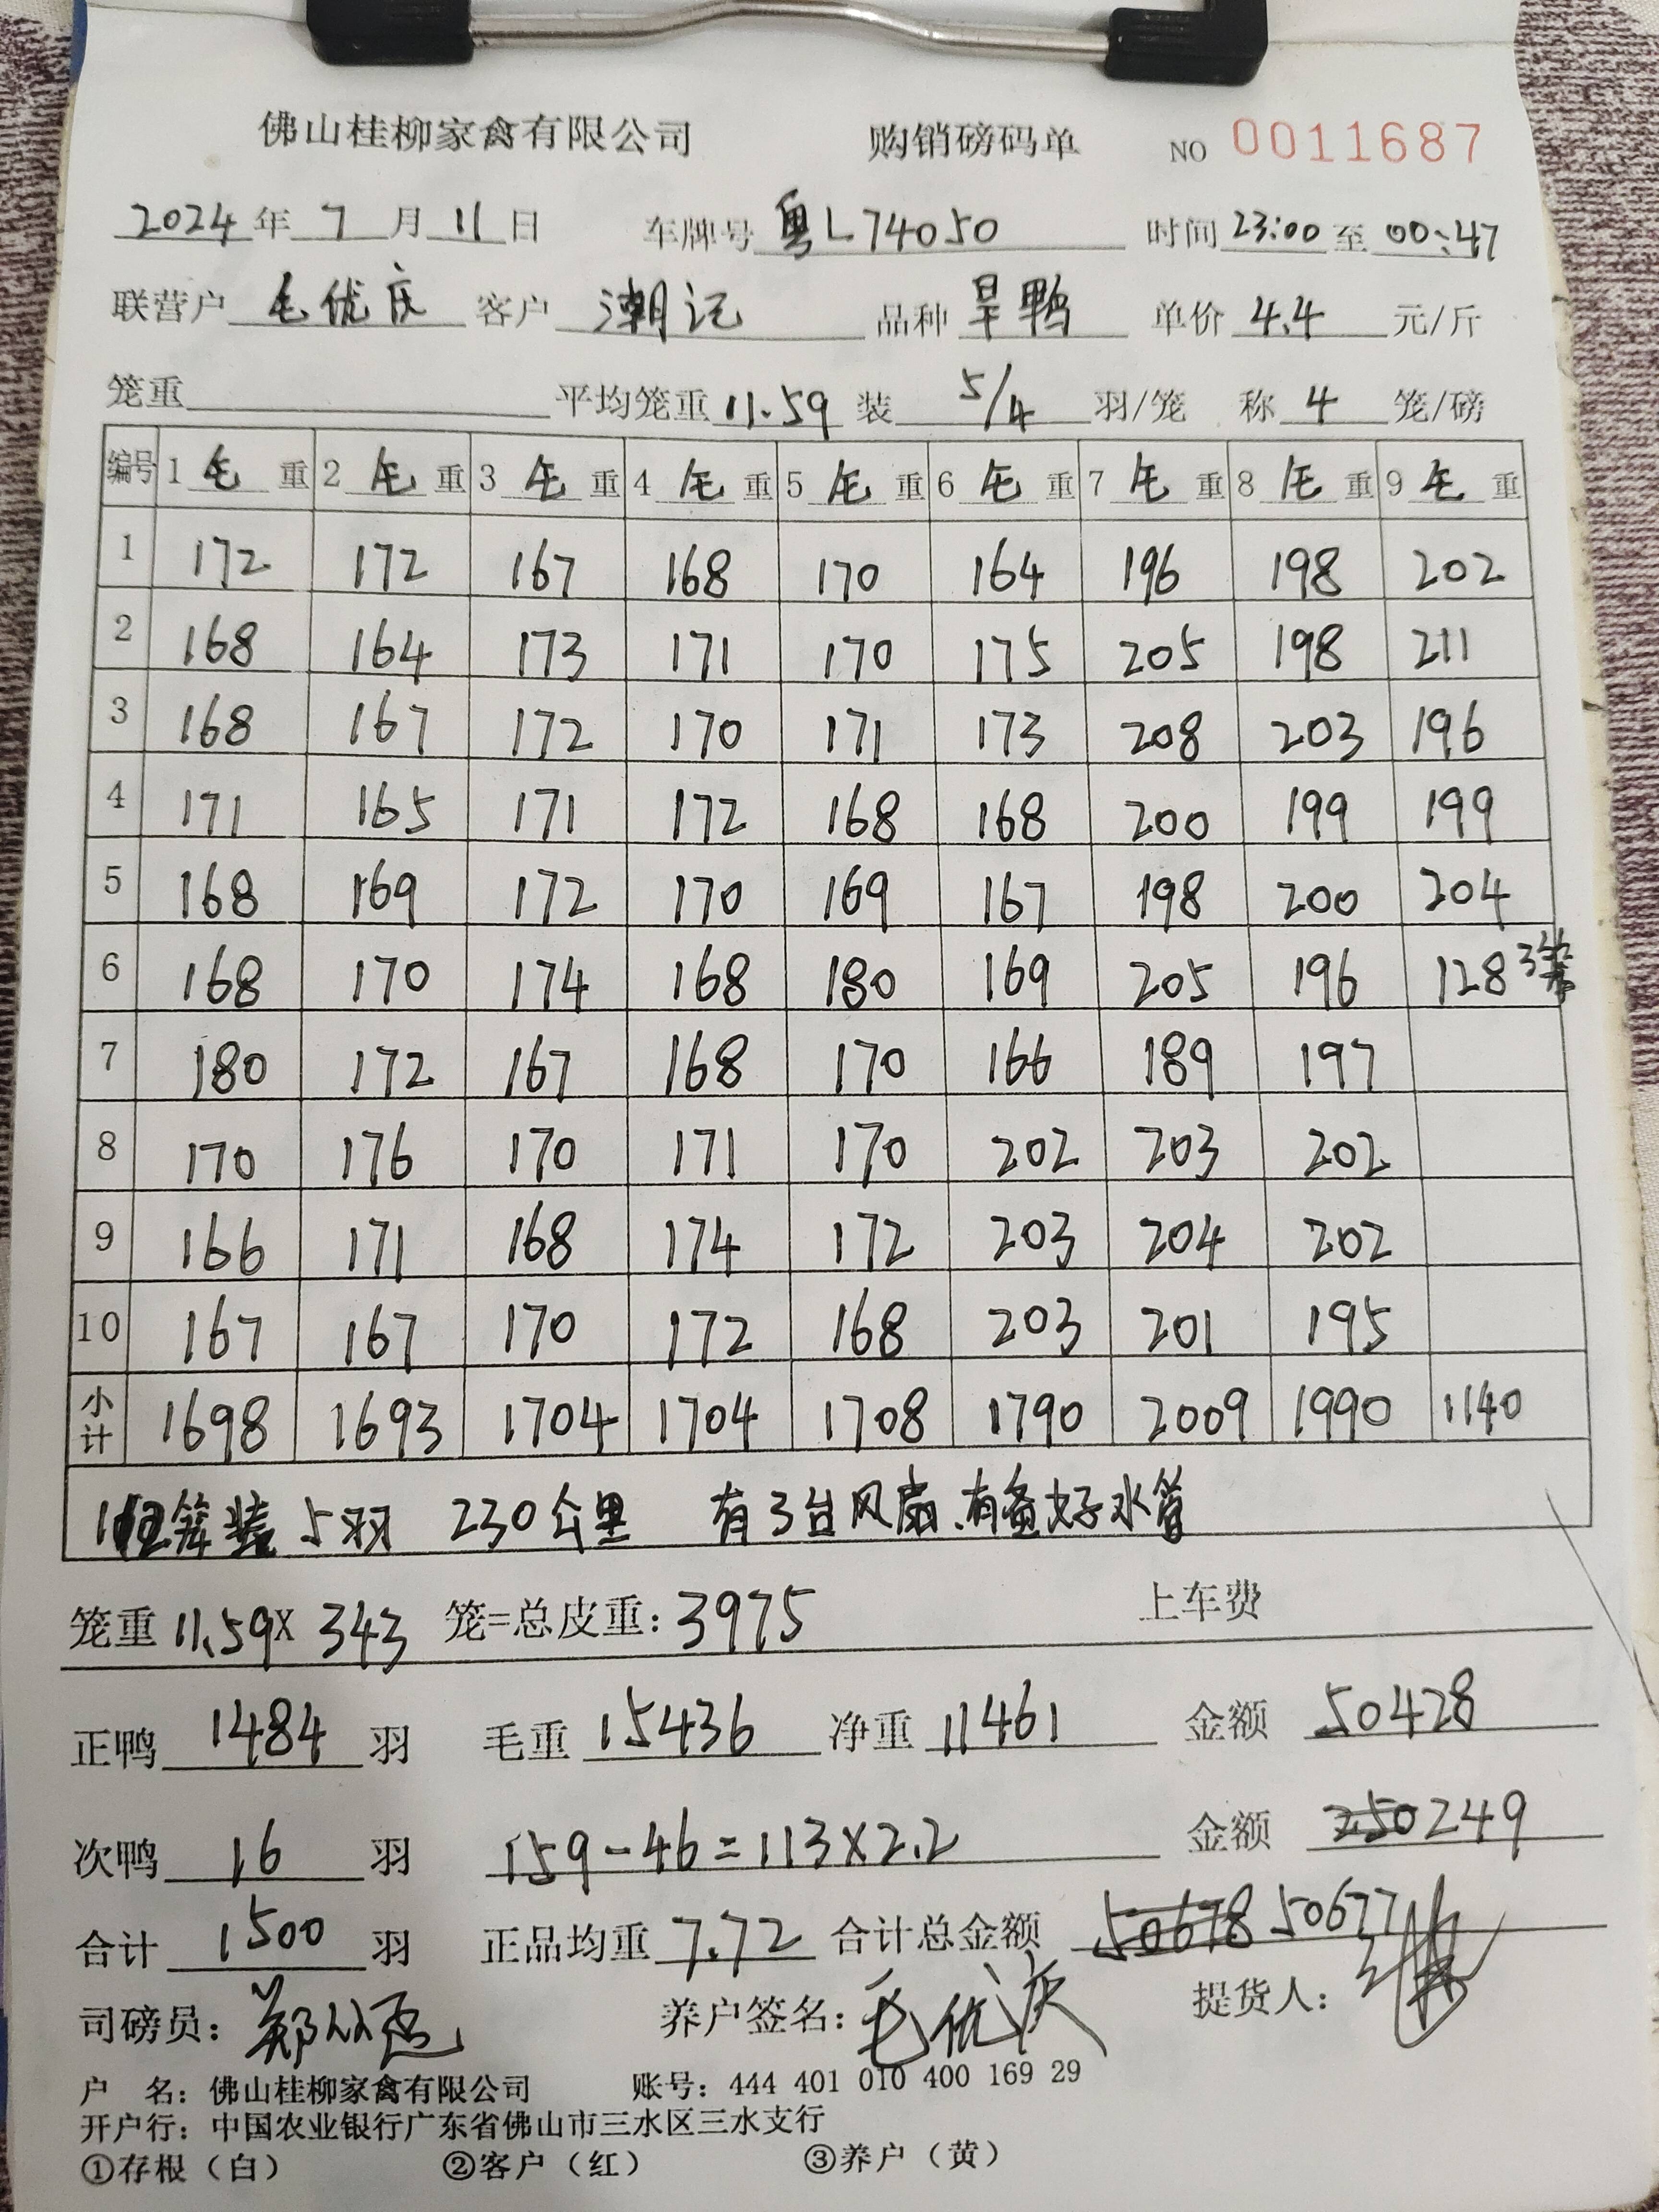 佛山桂柳家禽有限公司 购销磅码单 NO 0011687
2024年7月11日 车牌号 粤L74050 时间 23:00 至 00:47
联营户 毛优庆 客户 潮记 品种 旱鸭 单价 4.4 元/斤
笼重 平均笼重 11.59 装 5/4 羽/笼 称 4 笼/磅
编号 1 毛 重 2 毛 重 3 毛 重 4 毛 重 5 毛 重 6 毛 重 7 毛 重 8 毛 重 9 毛 重
1 172 172 167 168 170 164 196 198 202
2 168 164 173 171 170 175 205 198 211
3 168 167 172 170 171 173 208 203 196
4 171 165 171 172 168 168 200 199 199
5 168 169 172 170 169 167 198 200 204
6 168 170 174 168 180 169 205 196 128 3笼
7 180 172 167 168 170 166 189 197
8 170 176 170 171 170 202 203 202
9 166 171 168 174 172 203 204 202
10 167 167 170 172 168 203 201 195
小计 1698 1693 1704 1704 1708 1790 2009 1990 1140
装 5羽 230公里 有3台风扇、有备好水管
笼重 11.59 X 343 笼=总皮重: 3975 上车费
正鸭 1484 羽 毛重 15436 净重 11461 金额 50428
次鸭 16 羽 159-46=113X2.2 金额 250 249
合计 1500 羽 正品均重 7.72 合计总金额 50678 50677
司磅员: 郑 养户签名: 毛优庆 提货人:
户 名: 佛山桂柳家禽有限公司 账号: 444 401 010 400 169 29
开户行: 中国农业银行广东省佛山市三水区三水支行
①存根(白) ②客户(红) ③养户(黄)